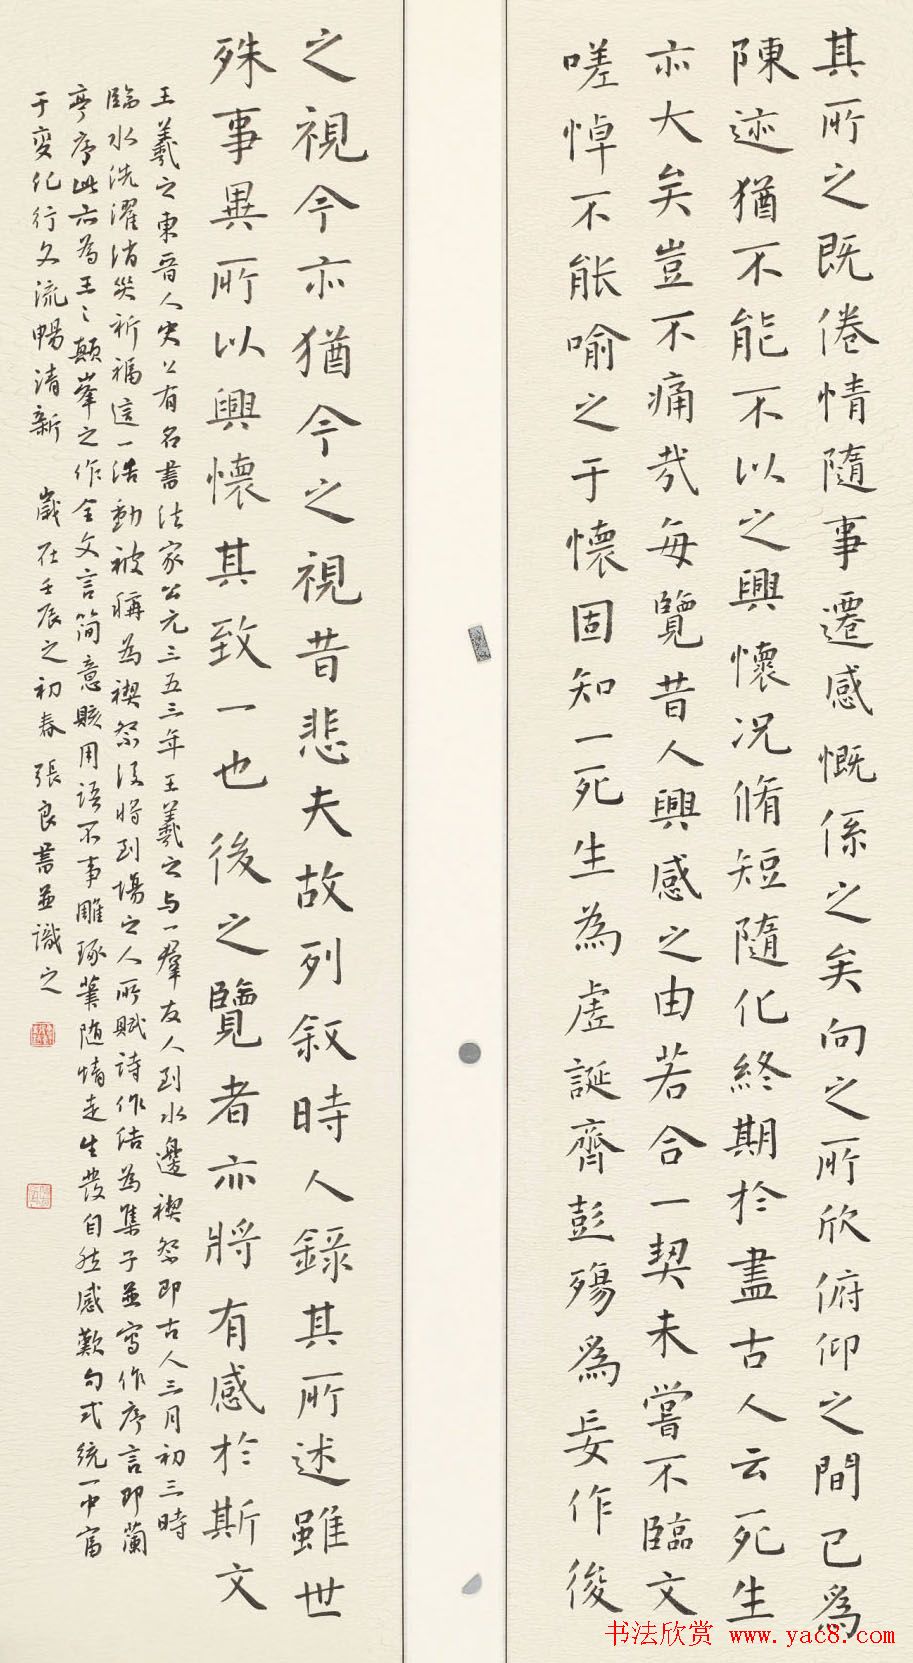 其所之既倦情隨事遷感慨係之矣向之所欣俯仰之間已為
陳迹猶不能不以之興懷况脩短隨化終期於盡古人云死生
亦大矣豈不痛哉每覽昔人興感之由若合一契未嘗不臨文
嗟悼不能喻之于懷固知一死生為虛誕齊彭殤為妄作後
之視今亦猶今之視昔悲夫故列叙時人錄其所述雖世
殊事異所以興懷其致一也後之覽者亦將有感於斯文
王羲之東晉人史上有名書法家公元三五三年王羲之与一羣友人到水邊禊祭即古人三月初三時
臨水洗濯消災祈福這一活動被稱為禊祭後將到場之人所賦詩作結為集子並寫作序言即蘭
亭序此亦為王之顛峯之作全文言简意賅用語不事雕琢葉随情走生發自然感歎句式統一中富
于变化行文流暢清新 歲在壬辰之初春張良書並識之
书法欣赏 www.yac8.com